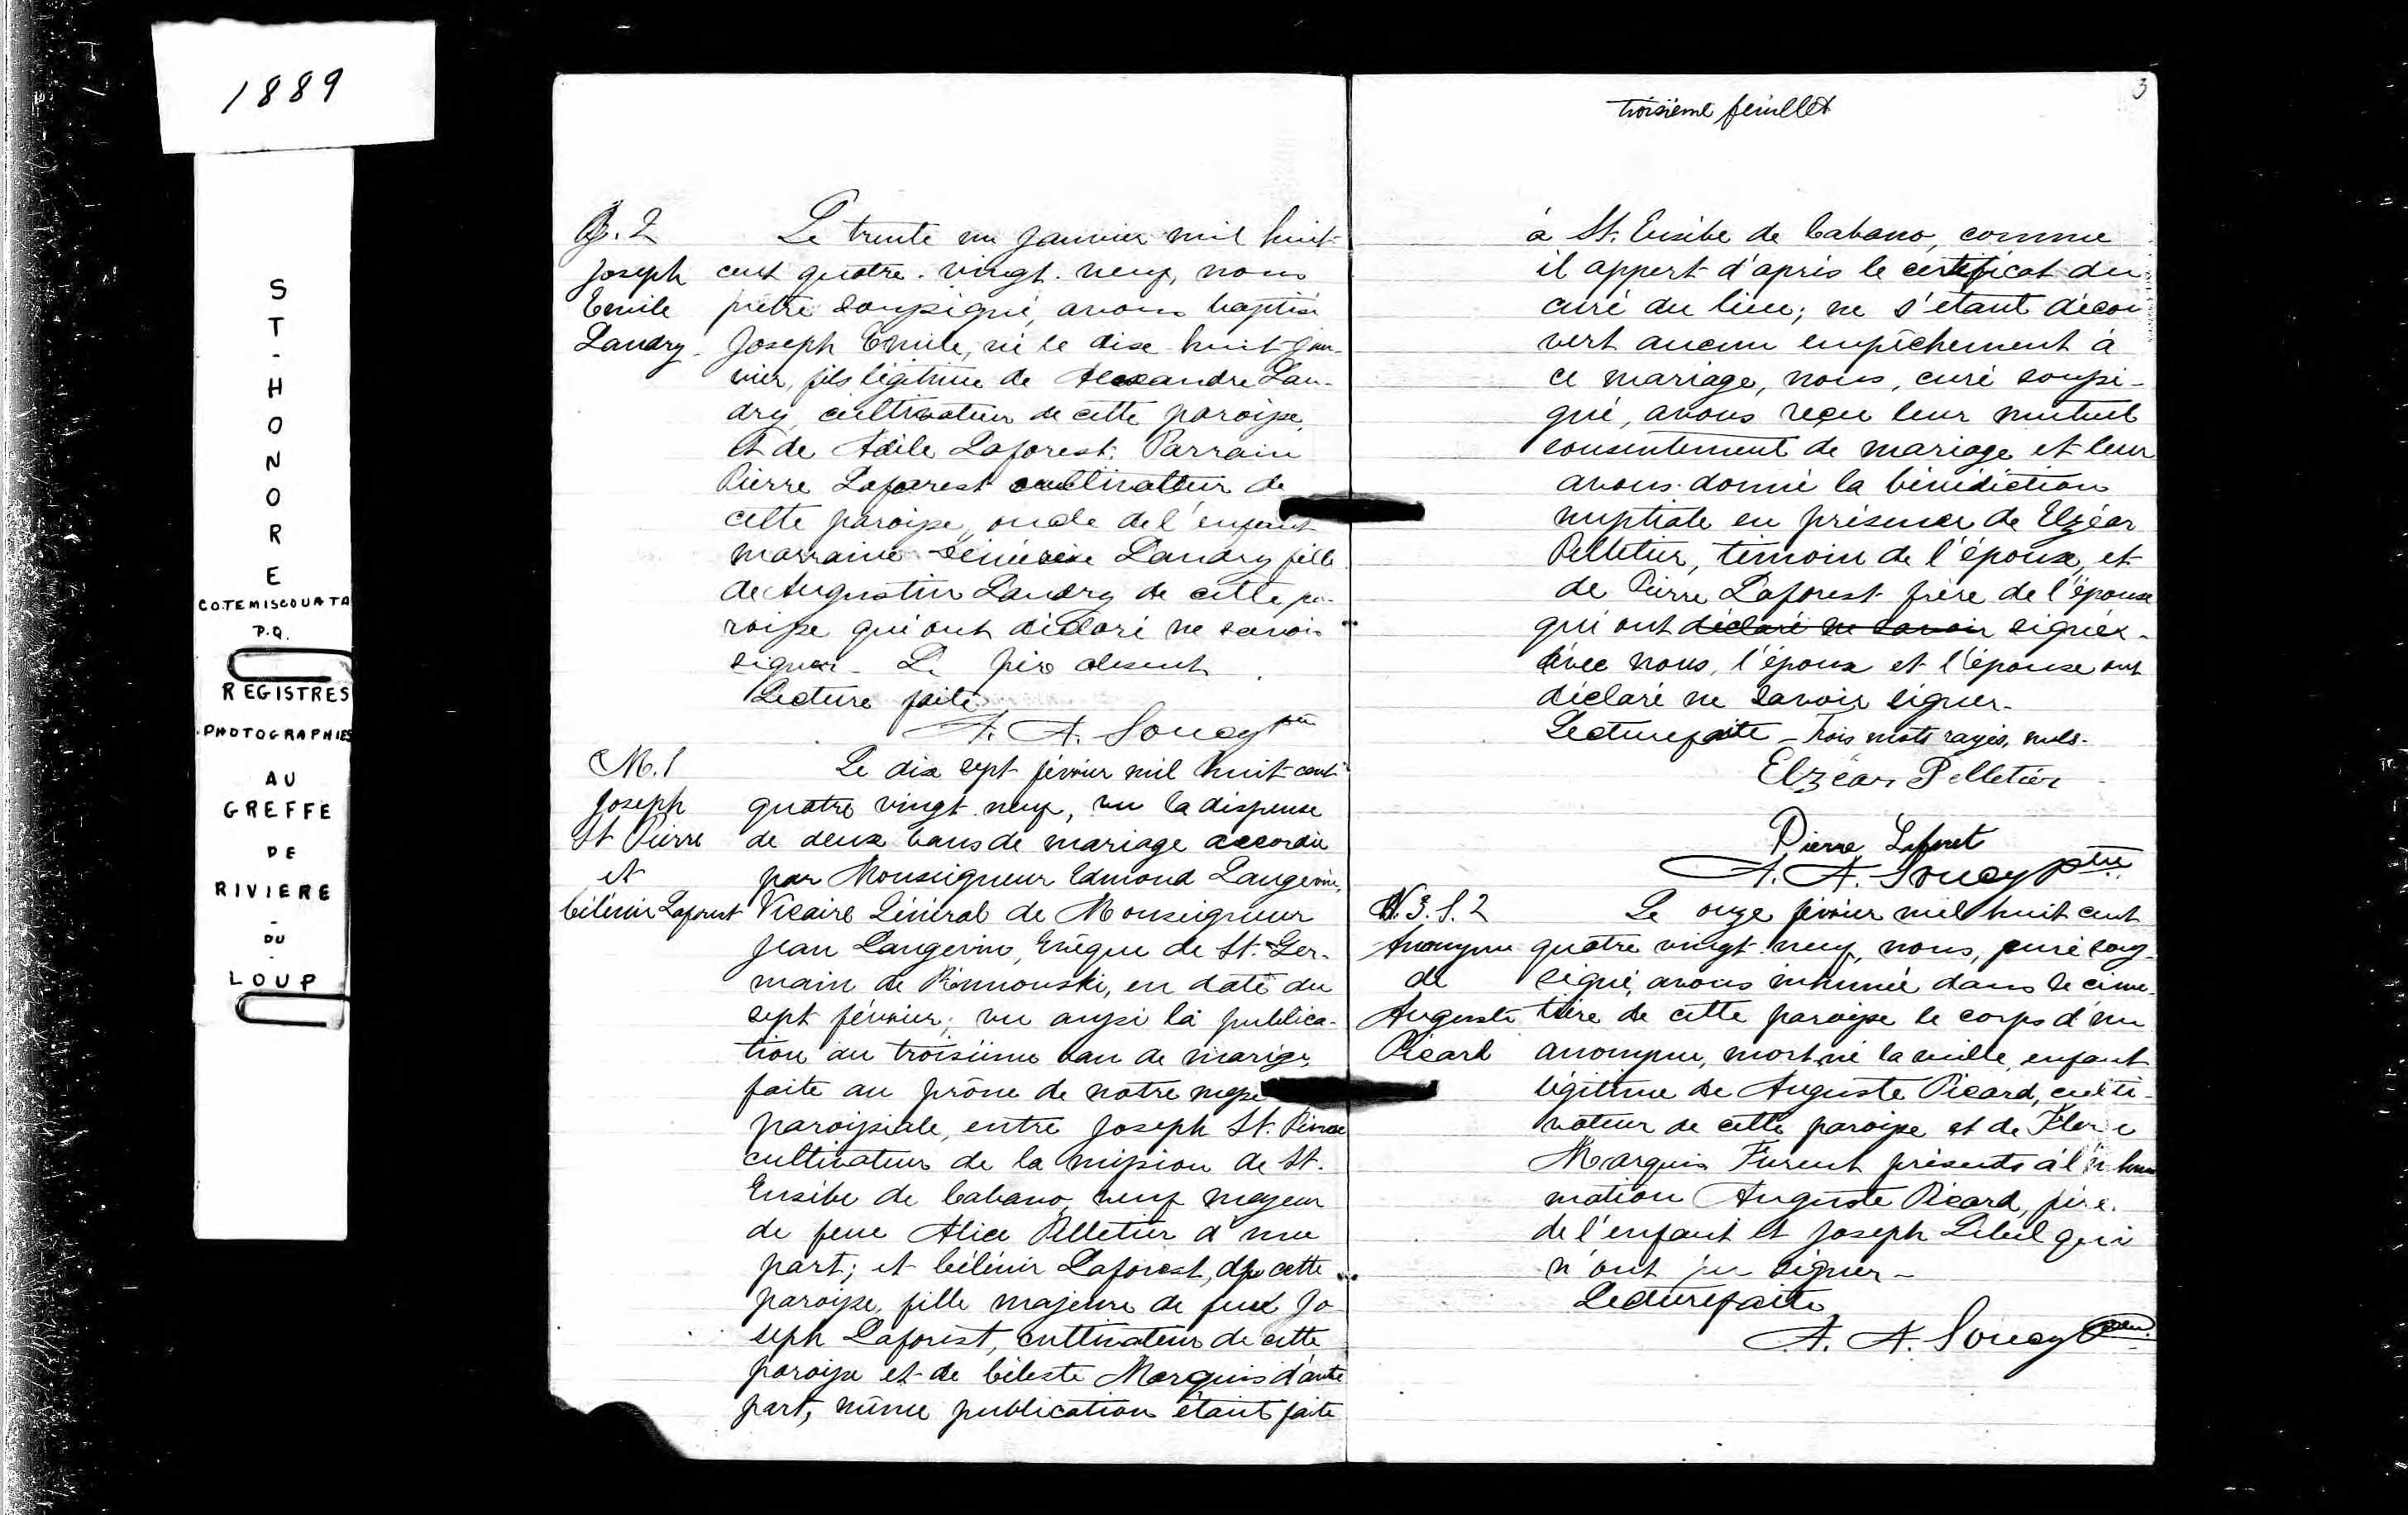 1889
S
T
-
H
O
N
O
R
E
CO.TEMISCOUATA
P.Q.
REGISTRES
PHOTOGRAPHIES
AU
GREFFE
DE
RIVIERE
-
DU
-
LOUP
B. 2
Joseph
Emile
Landry
Le trente un janvier mil huit
cent quatre-vingt-neuf, nous
prêtre soussigné, avons baptisé
Joseph Emile, né le dix-huit jan-
vier, fils légitime de Alexandre Lan-
dry, cultivateur de cette paroisse,
et de Adèle Laforest. Parrain
Pierre Laforest cultivateur de
cette paroisse, oncle de l'enfant
marraine Landry fille
de Augustin Landry de cette pa-
roisse qui ont déclaré ne savoir
signer - Le père absent
Lecture faite
A. A. Soucy ptre
M. 1
Joseph
St Pierre
et
Célénir Laforest
Le dix sept février mil huit cent
quatre vingt-neuf, vu la dispense
de deux bans de mariage accordée
par Monseigneur Edmond Langevin,
Vicaire Général de Monseigneur
Jean Langevin, Evêque de St. Ger-
main de Rimouski, en date du
sept février; vu aussi la publica-
tion du troisième ban de mariage,
faite au prône de notre messe
paroissiale, entre Joseph St. Pierre
cultivateur de la mission de St.
Eusèbe de Cabano, veuf majeur
de feue Alice Pelletier d'une
part; et Célénir Laforest, de cette
paroisse, fille majeure de feux Jo-
seph Laforest, cultivateur de cette
paroisse et de Céleste Marquis d'autre
part, même publication étant faite
3
troisième feuillet
à St. Eusèbe de Cabano, comme
il appert d'après le certificat du
curé du lieu; ne s'étant décou
vert aucun empêchement à
ce mariage, nous, curé soussi-
gné, avons reçu leur mutuel
consentement de mariage et leur
avons donné la bénédiction
nuptiale en présence de Elzéar
Pelletier, témoin de l'époux, et
de Pierre Laforest frère de l'épouse
qui ont déclaré ne savoir signer -
avec nous, l'époux et l'épouse ont
déclaré ne savoir signer -
Lecture faite - Trois mots rayés, nuls -
Elzéar Pelletier
Pierre Laforet
A. A. Soucy ptre
N. 3. S. 2
Anonyme
de
Auguste
Picard
Le onze février mil huit cent
quatre vingt-neuf, nous, curé sous-
signé, avons inhumé dans le cime-
tière de cette paroisse le corps d'un
anonyme, mort né la veille, enfant
légitime de Auguste Picard, culti-
vateur de cette paroisse et de
Marquis Furent présents à l'inhu
mation Auguste Picard, père
de l'enfant et Joseph Lebel qui
n'ont pu signer -
Lecture faite
A. A. Soucy ptre